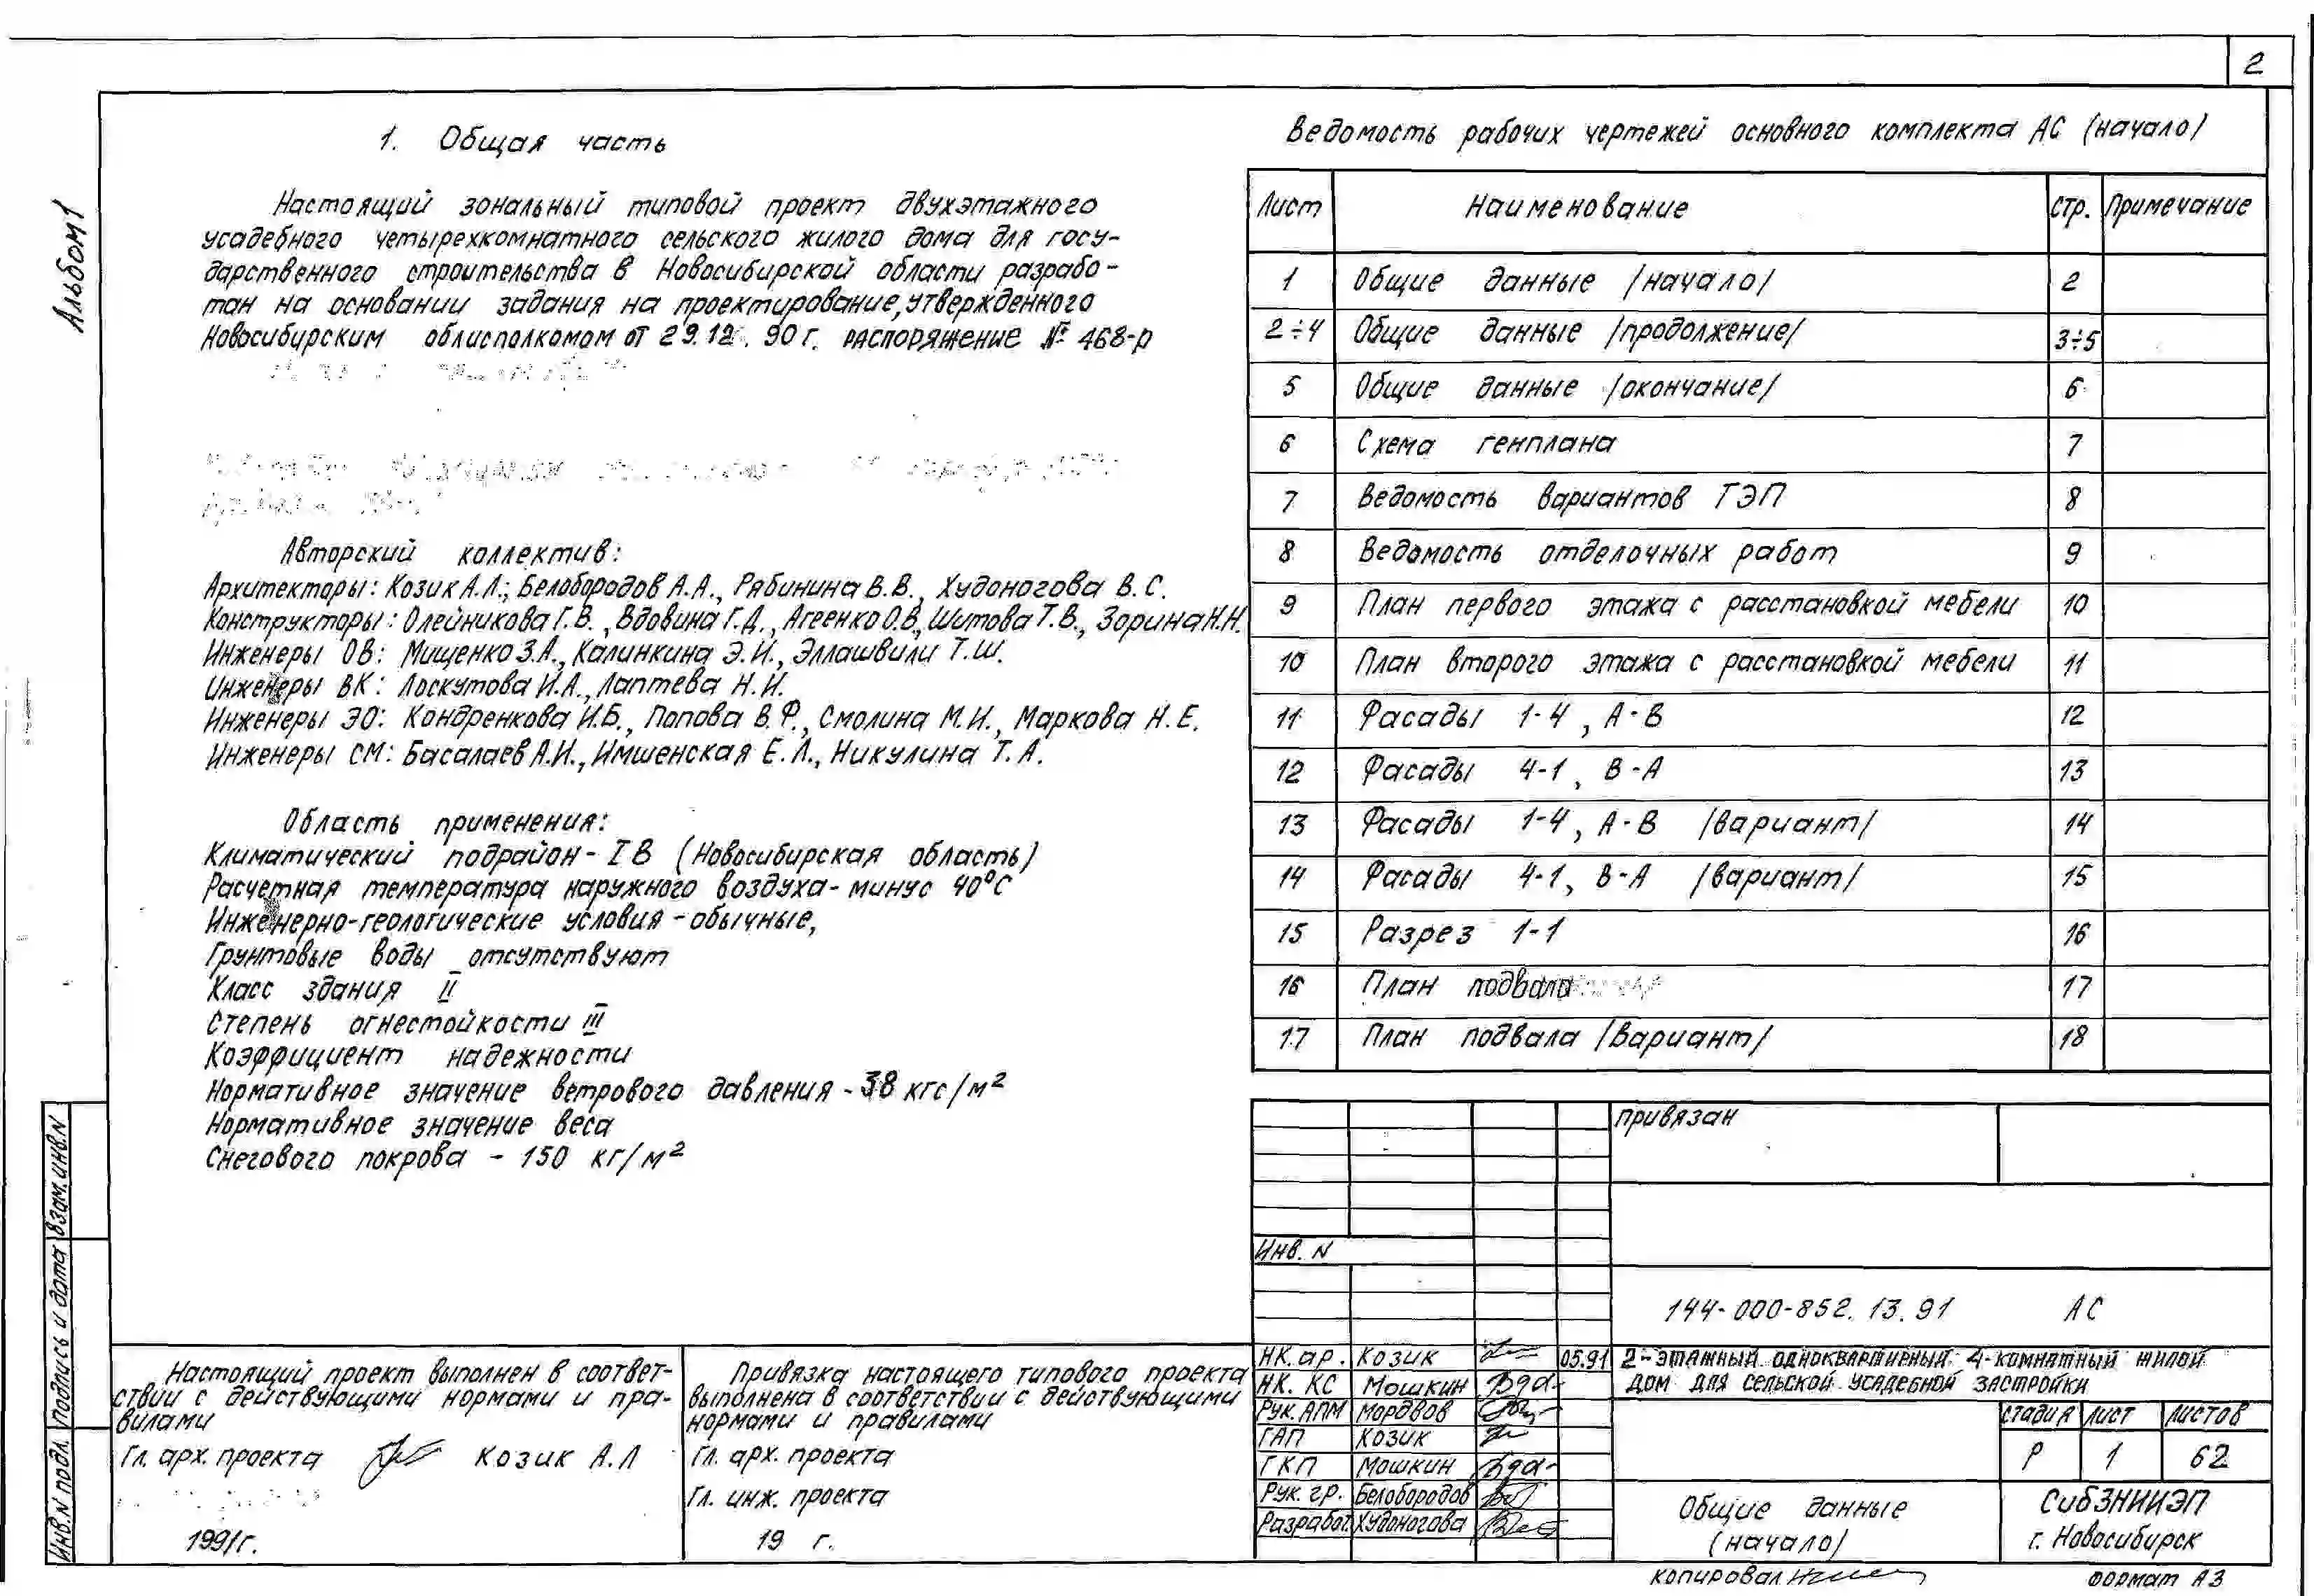 2
Альбом 1
1. Общая часть
Настоящий зональный типовой проект двухэтажного
усадебного четырехкомнатного сельского жилого дома для госу-
дарственного строительства в Новосибирской области разрабо-
тан на основании задания на проектирование, утвержденного
Новосибирским облисполкомом от 29.12. 90 г. распоряжение № 468-р
Авторский коллектив:
Архитекторы: Козик А.Л., Белобородов А.А., Рябинина В.В., Худоногова В.С.
Конструкторы: Олейникова Г.В., Вдовина Г.Д., Агеенко О.В., Шитова Т.В., Зорина Н.Н.
Инженеры ОВ: Мищенко З.А., Калинкина Э.И., Эллашвили Т.Ш.
Инженеры ВК: Лоскутова И.А., Лаптева Н.И.
Инженеры ЭО: Кондренкова И.Б., Попова В.Ф., Смолина М.И., Маркова Н.Е.
Инженеры СМ: Басалаев А.И., Имшенская Е.Л., Никулина Т.А.
Область применения:
Климатический подрайон - I В (Новосибирская область)
Расчетная температура наружного воздуха - минус 40°С
Инженерно-геологические условия - обычные,
Грунтовые воды отсутствуют
Класс здания II
Степень огнестойкости III
Коэффициент надежности
Нормативное значение ветрового давления - 38 кгс/м²
Нормативное значение веса
Снегового покрова - 150 кг/м²
Ведомость рабочих чертежей основного комплекта АС (начало)
Лист Наименование стр. Примечание
1 Общие данные /начало/ 2
2÷4 Общие данные /продолжение/ 3÷5
5 Общие данные /окончание/ 6
6 Схема генплана 7
7 Ведомость вариантов ТЭП 8
8 Ведомость отделочных работ 9
9 План первого этажа с расстановкой мебели 10
10 План второго этажа с расстановкой мебели 11
11 Фасады 1-4, А-В 12
12 Фасады 4-1, В-А 13
13 Фасады 1-4, А-В /вариант/ 14
14 Фасады 4-1, В-А /вариант/ 15
15 Разрез 1-1 16
16 План подвала 17
17 План подвала /вариант/ 18
привязан
Инв. N
144-000-852. 13. 91 АС
НК. ар. Козик 05.91
НК. КС Мошкин
Рук. АПМ Мордвов
ГАП Козик
ГКП Мошкин
Рук. гр. Белобородов
Разработ. Худоногова
2-этажный одноквартирный 4-комнатный жилой
дом для сельской усадебной застройки
стадия лист листов
Р 1 62
Общие данные
(начало)
СибЗНИИЭП
г. Новосибирск
Настоящий проект выполнен в соответ-
ствии с действующими нормами и пра-
вилами
Гл. арх. проекта Козик А.Л
1991г.
Привязка настоящего типового проекта
выполнена в соответствии с действующими
нормами и правилами
Гл. арх. проекта
Гл. инж. проекта
19 г.
Инв. N подл. Подпись и дата Взам. инв. N
копировал
формат А3